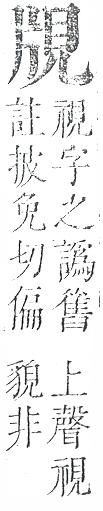 視字之譌舊
註披免切偏
上聲視
貌非